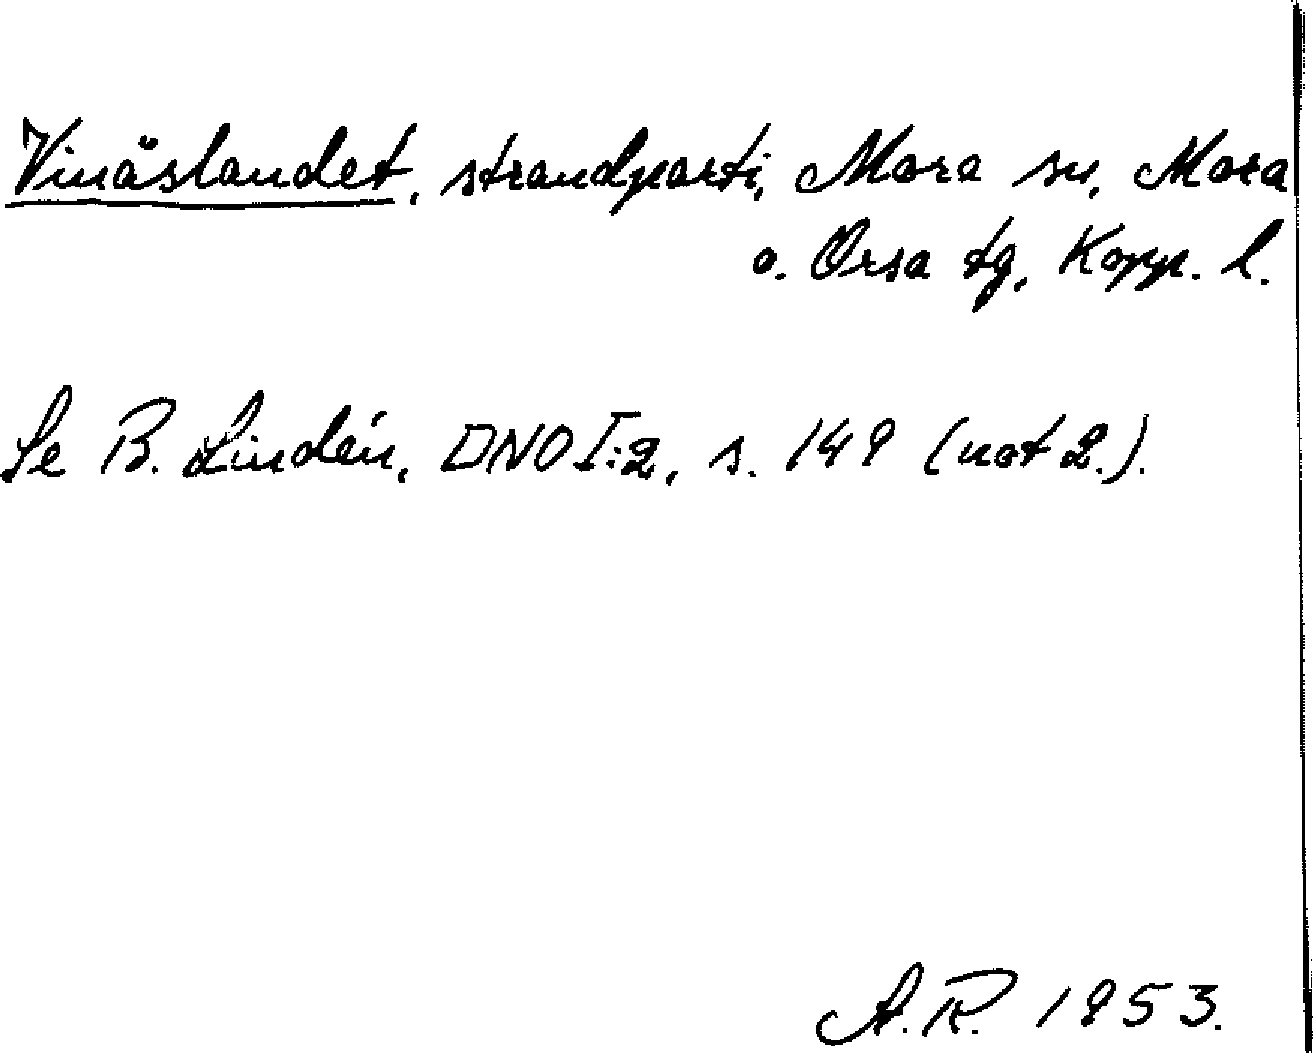 Vinäslandet, strandparti, Mora sn, Mora
o. Orsa tg, Kopp. l.
Se B. Lindén, DNO I:2, s. 149 (not 2.).
A.R. 1953.